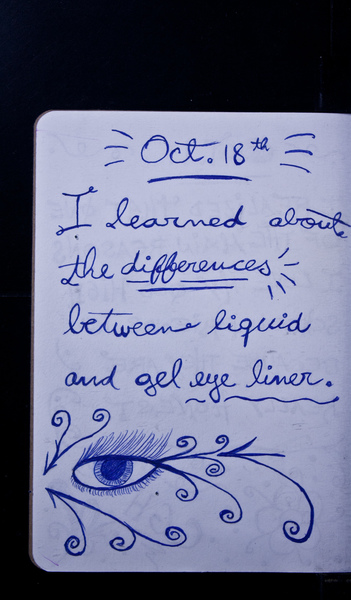 Oct. 18th
I learned about
the differences
between liquid
and gel eye liner.